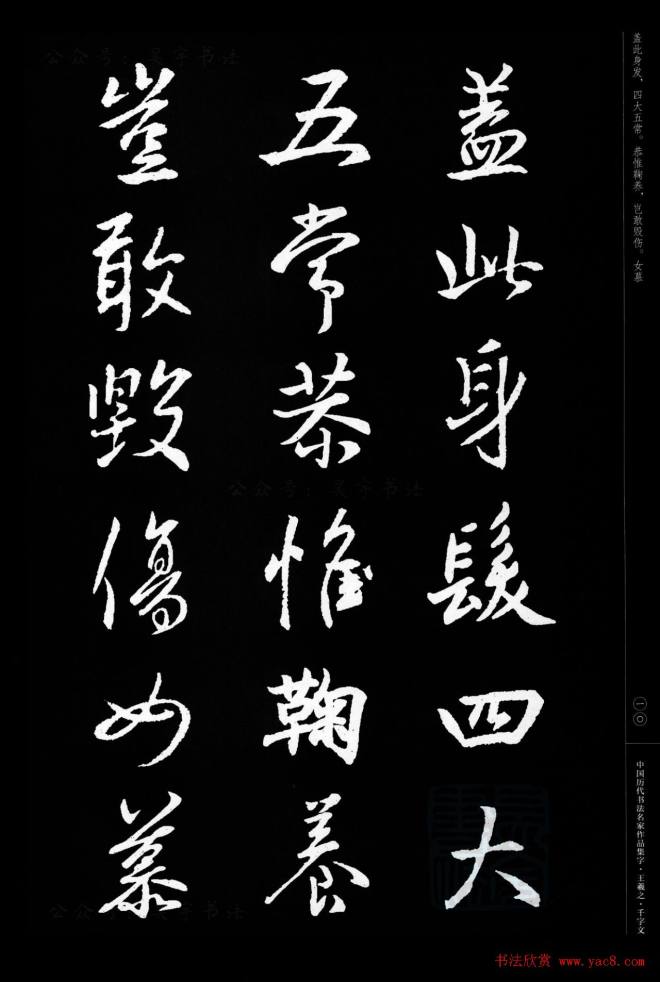 蓋此身髮四大
五常恭惟鞠養
豈敢毀傷女慕
盖此身发，四大五常。恭惟鞠养，岂敢毁伤。女慕
一〇
中国历代书法名家作品集字·王羲之·千字文
公众号：吴宇书法
公众号：吴宇书法
公众号：吴宇书法
书法欣赏 www.yac8.com